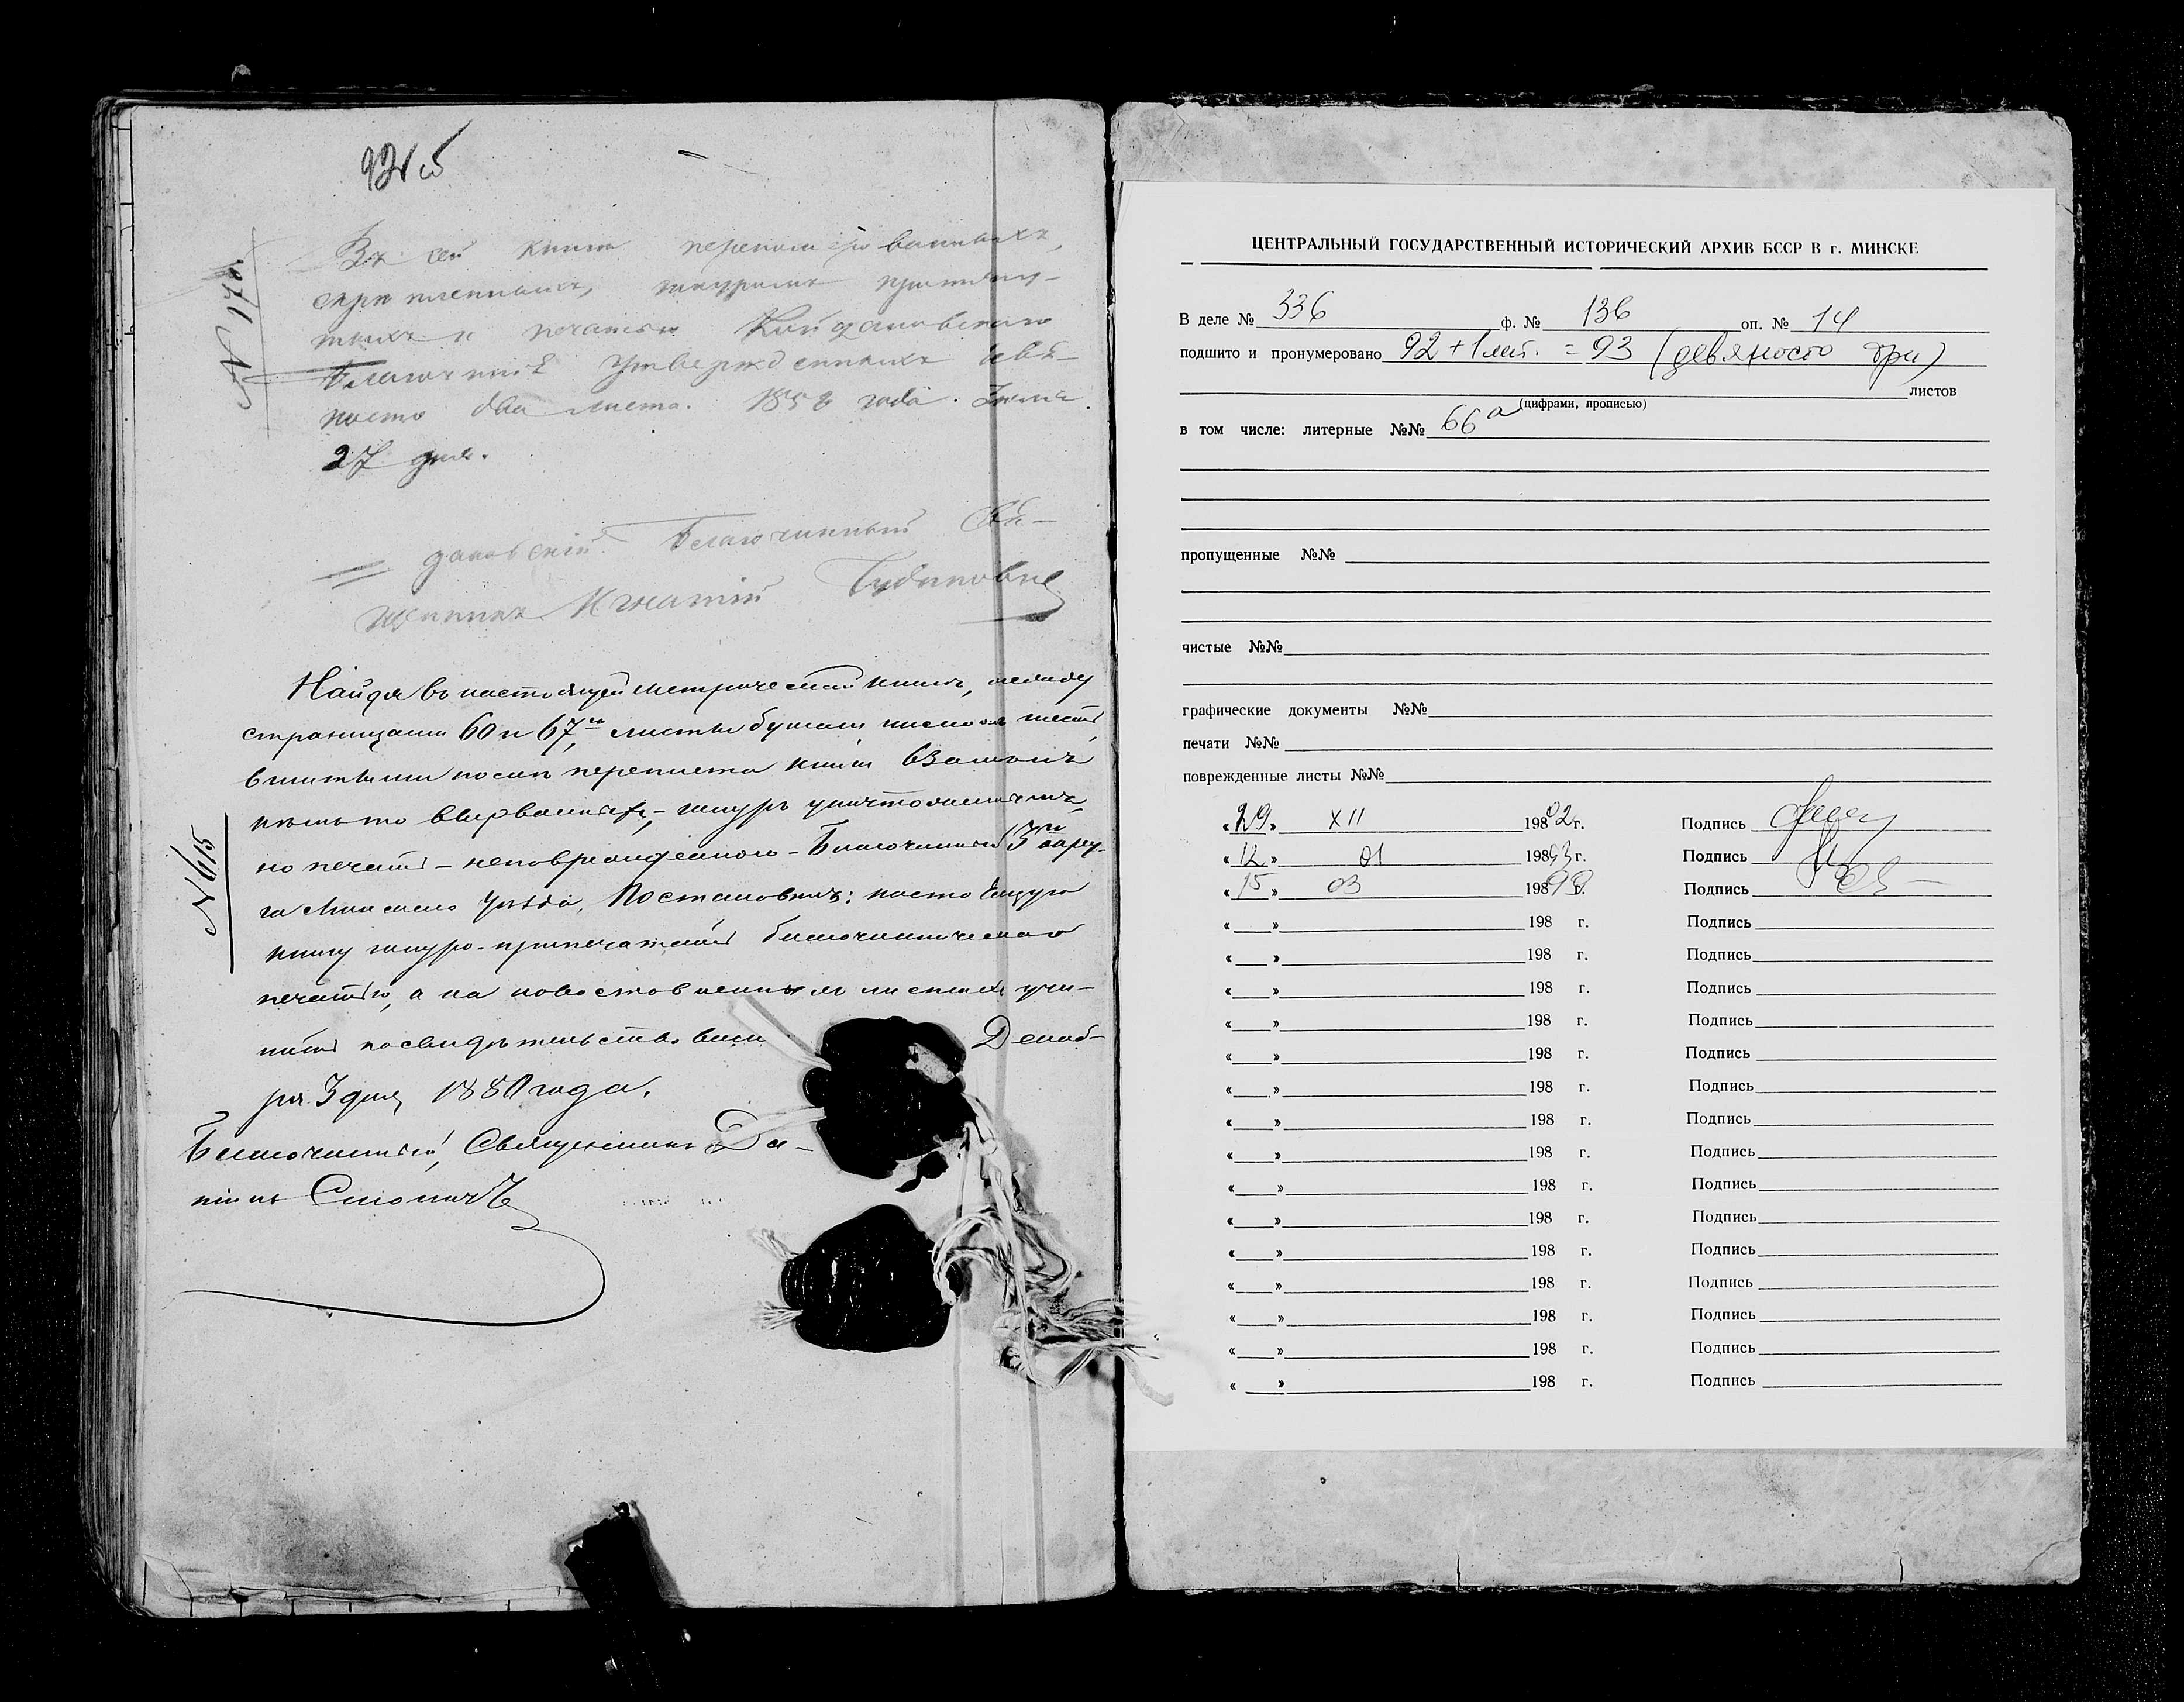 92 об
№ 170
Въ сей книгѣ перенумерованныхъ,
скрѣпленныхъ, шнуромъ притяну-
тыхъ и печатью Койдановскаго
Благочинія утвержденныхъ девя-
носто два листа. 1858 года. Іюня
27 дня.
дановскій Благочинный Свя-
щенникъ Игнатій
№ 615
Найдя въ настоящей метрической книгѣ, между
страницами 60 и 67, листы бумаги числомъ шесть,
вшитыми послѣ переплета книги взамѣнъ
кѣмъ то вырванныхъ, - шнуръ уничтоженнымъ,
но печать - неповрежденною - Благочинный 3го окру-
га Минскаго уѣзда, Постановилъ: настоящую
книгу шнуро-припечатать благочинническою
печатью, а на новоставленныхъ листахъ учи-
нить посвидѣтельствованіе Декаб-
ря 3 дня 1880 года.
Благочинный, Священникъ Да-
ніилъ
ЦЕНТРАЛЬНЫЙ ГОСУДАРСТВЕННЫЙ ИСТОРИЧЕСКИЙ АРХИВ БССР В г. МИНСКЕ
В деле № 336 ф. № 136 оп. № 14
подшито и пронумеровано 92 + 1 лит. = 93 (девяносто три)
листов
(цифрами, прописью)
в том числе: литерные №№ 66а
пропущенные №№
чистые №№
графические документы №№
печати №№
поврежденные листы №№
«29» XII 198 г. Подпись
«12» 01 198 г. Подпись
«15» 03 198 г. Подпись
« » 198 г. Подпись
« » 198 г. Подпись
« » 198 г. Подпись
« » 198 г. Подпись
« » 198 г. Подпись
« » 198 г. Подпись
« » 198 г. Подпись
« » 198 г. Подпись
« » 198 г. Подпись
« » 198 г. Подпись
« » 198 г. Подпись
« » 198 г. Подпись
« » 198 г. Подпись
« » 198 г. Подпись
« » 198 г. Подпись